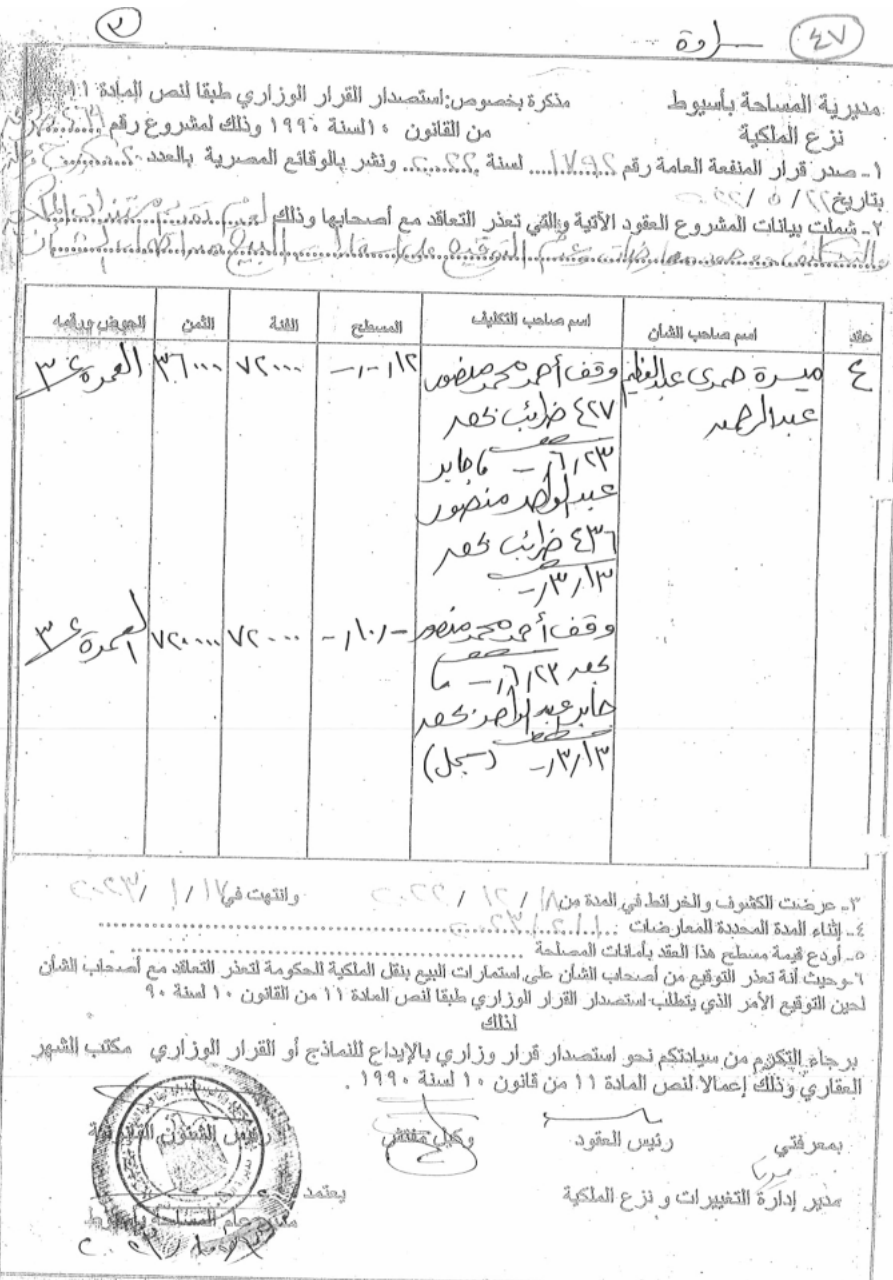 ٣
٤٧
مديرية المساحة بأسيوط
نزع الملكية
مذكرة بخصوص:استصدار القرار الوزاري طبقا لنص المادة ١١
من القانون ١٠ لسنة ١٩٩٠ وذلك لمشروع رقم
١- صدر قرار المنفعة العامة رقم ١٧٩٢ لسنة ٢٠٢٢ ونشر بالوقائع المصرية بالعدد
بتاريخ ٢٢ / ٥ / ٢٠٢٢
٢- شملت بيانات المشروع العقود الآتية والتي تعذر التعاقد مع أصحابها وذلك لعدم تقديم مستندات الملكية
والتكليف عدم التوقيع على استمارات البيع الشأن
عقد اسم صاحب الشأن اسم صاحب التكليف المسطح الفئة الثمن الحوض ورقمه
٤ ميسرة حمدى عبدالعظيم عبدالرحمن وقف أحمد محمد منصور ١٢/-/- ٧٢٠٠٠ ٣٦٠٠٠ العمدة ٣
٤٢٧ ضرائب بحصر
٢٣/٦/- جابر
عبدالواحد منصور
٤٣٦ ضرائب بحصر
١٣/٣/-
وقف أحمد محمد منصور -/١٠/- ٧٢٠٠٠ ٧٢٠٠٠٠ العمدة ٣
بحصر ٢٣/٦/-
جابر عبدالواحد بحصر
١٣/٣/- (سجل)
٣- عرضت الكشوف والخرائط في المدة من ١٨ / ١٢ / ٢٠٢٢ وانتهت في ١٧ / ١ / ٢٠٢٣
٤- إثناء المدة المحددة للمعارضات
٥- أودع قيمة مسطح هذا العقد بأمانات المصلحة
٦-وحيث أنة تعذر التوقيع من أصحاب الشأن على استمارات البيع بنقل الملكية للحكومة لتعذر التعاقد مع أصحاب الشأن
لحين التوقيع الأمر الذي يتطلب استصدار القرار الوزاري طبقا لنص المادة ١١ من القانون ١٠ لسنة ٩٠
لذلك
برجاء التكرم من سيادتكم نحو استصدار قرار وزاري بالإيداع للنماذج أو القرار الوزاري مكتب الشهر
العقاري وذلك إعمالا لنص المادة ١١ من قانون ١٠ لسنة ١٩٩٠ .
بمعرفتي رئيس العقود وكيل مفتش رئيس الشئون القانونية
مدير إدارة التغييرات و نزع الملكية يعتمد
مدير عام المساحة بأسيوط